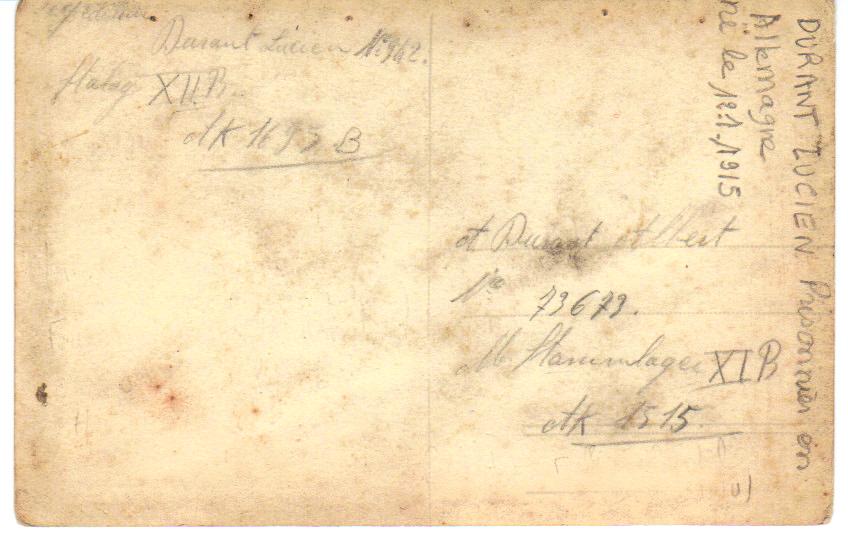 Durant Lucien N° 962.
Stalag XII B.
AK 1697 B
A Durant Albert
N° 73673.
M. Stammlager XI B
AK 1515.
DURANT LUCIEN Prisonnier en
Allemagne
né le 12.1.1915